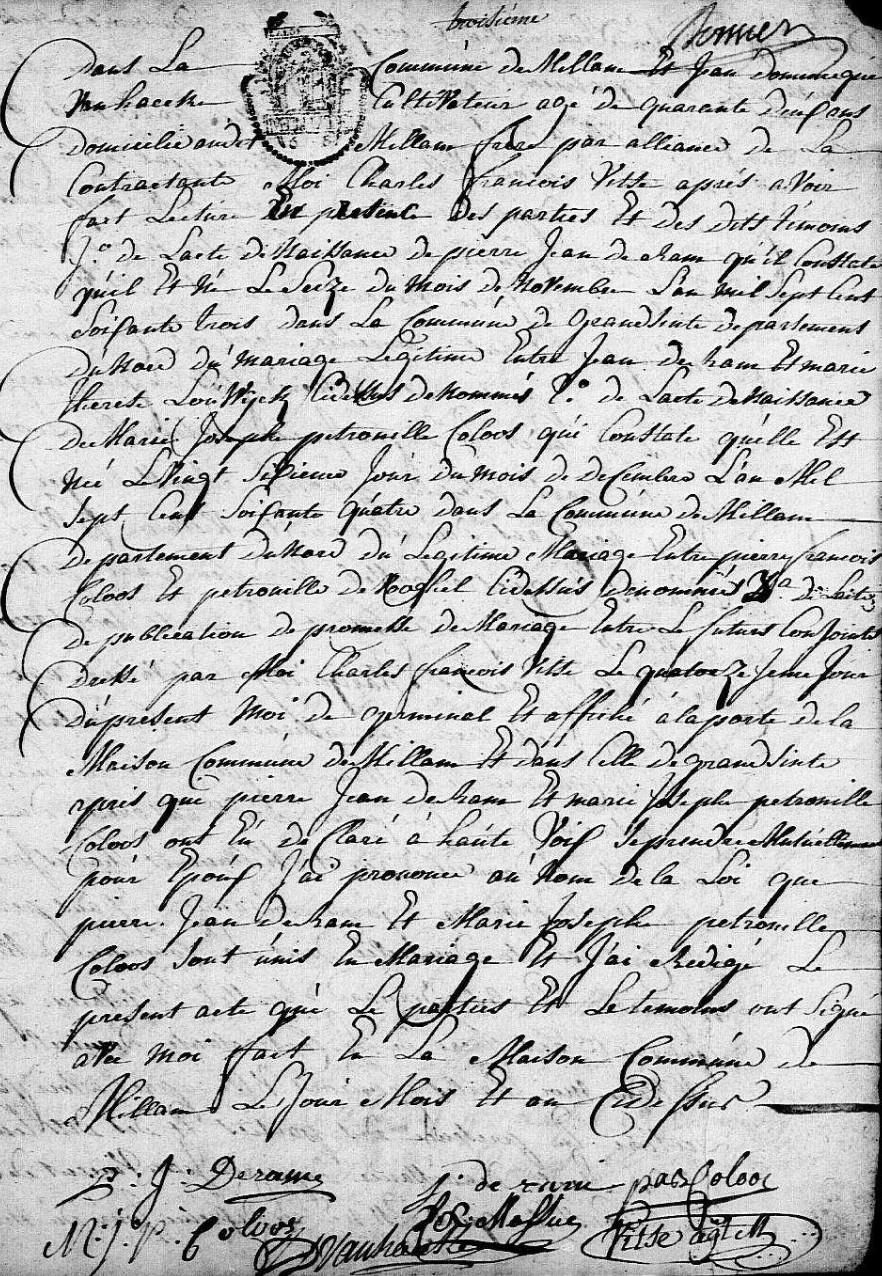 troisième
dans La Commune de Millam Et Jean dominique
Vanhaecke Cultivateur agé de quarante deux ans
domicilie audit Millam frere par alliance de La
Contractante Moi Charles francois Vitse aprés avoir
fait Lecture En presence des parties Et des dits témoins
1.o de Lacte de Naissance de pierre Jean de Ram qu'il Constate
qu'il Et Né Le Seize du mois de Novembre L'an mil Sept Cent
Soixante trois dans La Commune de grandsinte departement
du Nord du mariage Legitime Entre Jean de Ram Et marie
therese Cidessus denommés 2.o de Lacte de Naissance
de Marie Josephe petronille Coloos qui Constate qu'elle Est
Née Le Vingt Sixieme Jour du mois de decembre L'an Mil
Sept Cent Soixante quatre dans La Commune de Millam
departement du Nord du Legitime Mariage Entre pierre francois
Coloos Et petronille de Cidessus denommés 3.o de Lacte
de publication de promesse de Mariage Entre Le futurs Conjoints
dressé par Moi Charles francois Vitse Le quatorzeieme Jour
du present Moi de germinal Et affiché a la porte de la
Maison Commune de Millam Et dans Celle de grandsinte
apris que pierre Jean de Ram Et marie Joseph petronille
Coloos ont Eu de Claré à haute Voix Se prendre Mutuellement
pour Epoux Jai prononcé au Nom de la Loi que
pierre Jean de Ram Et Marie Josephe petronille
Coloos Sont unis En Mariage Et J'ai Redigé Le
present acte que Le parties Et Le temoins ont Signé
avec moi fait En La Maison Commune de
Millam Le Jour Mois Et an Cidessus
P. J. Derame J. de rame Coloos
M. j. p. Coloos Vanhaecke Vitse